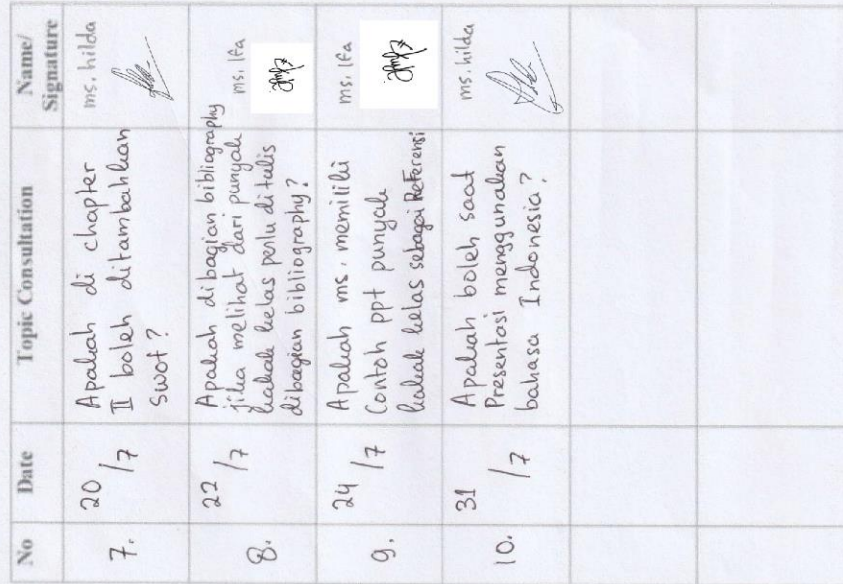 No
Date
Topic Consultation
Name/
Signature
7.
20
/7
Apakah di chapter
II boleh ditambahkan
swot?
ms. hilda
8.
22
/7
Apakah dibagian bibliography
jika melihat dari punyak
kakak kelas perlu ditulis
dibagian bibliography?
ms. Ifa
9.
24
/7
Apakah ms. memiliki
Contoh ppt punyak
kakak kelas sebagai Referensi
ms. Ifa
10.
31
/7
Apakah boleh saat
Presentasi menggunakan
bahasa Indonesia?
ms. hilda